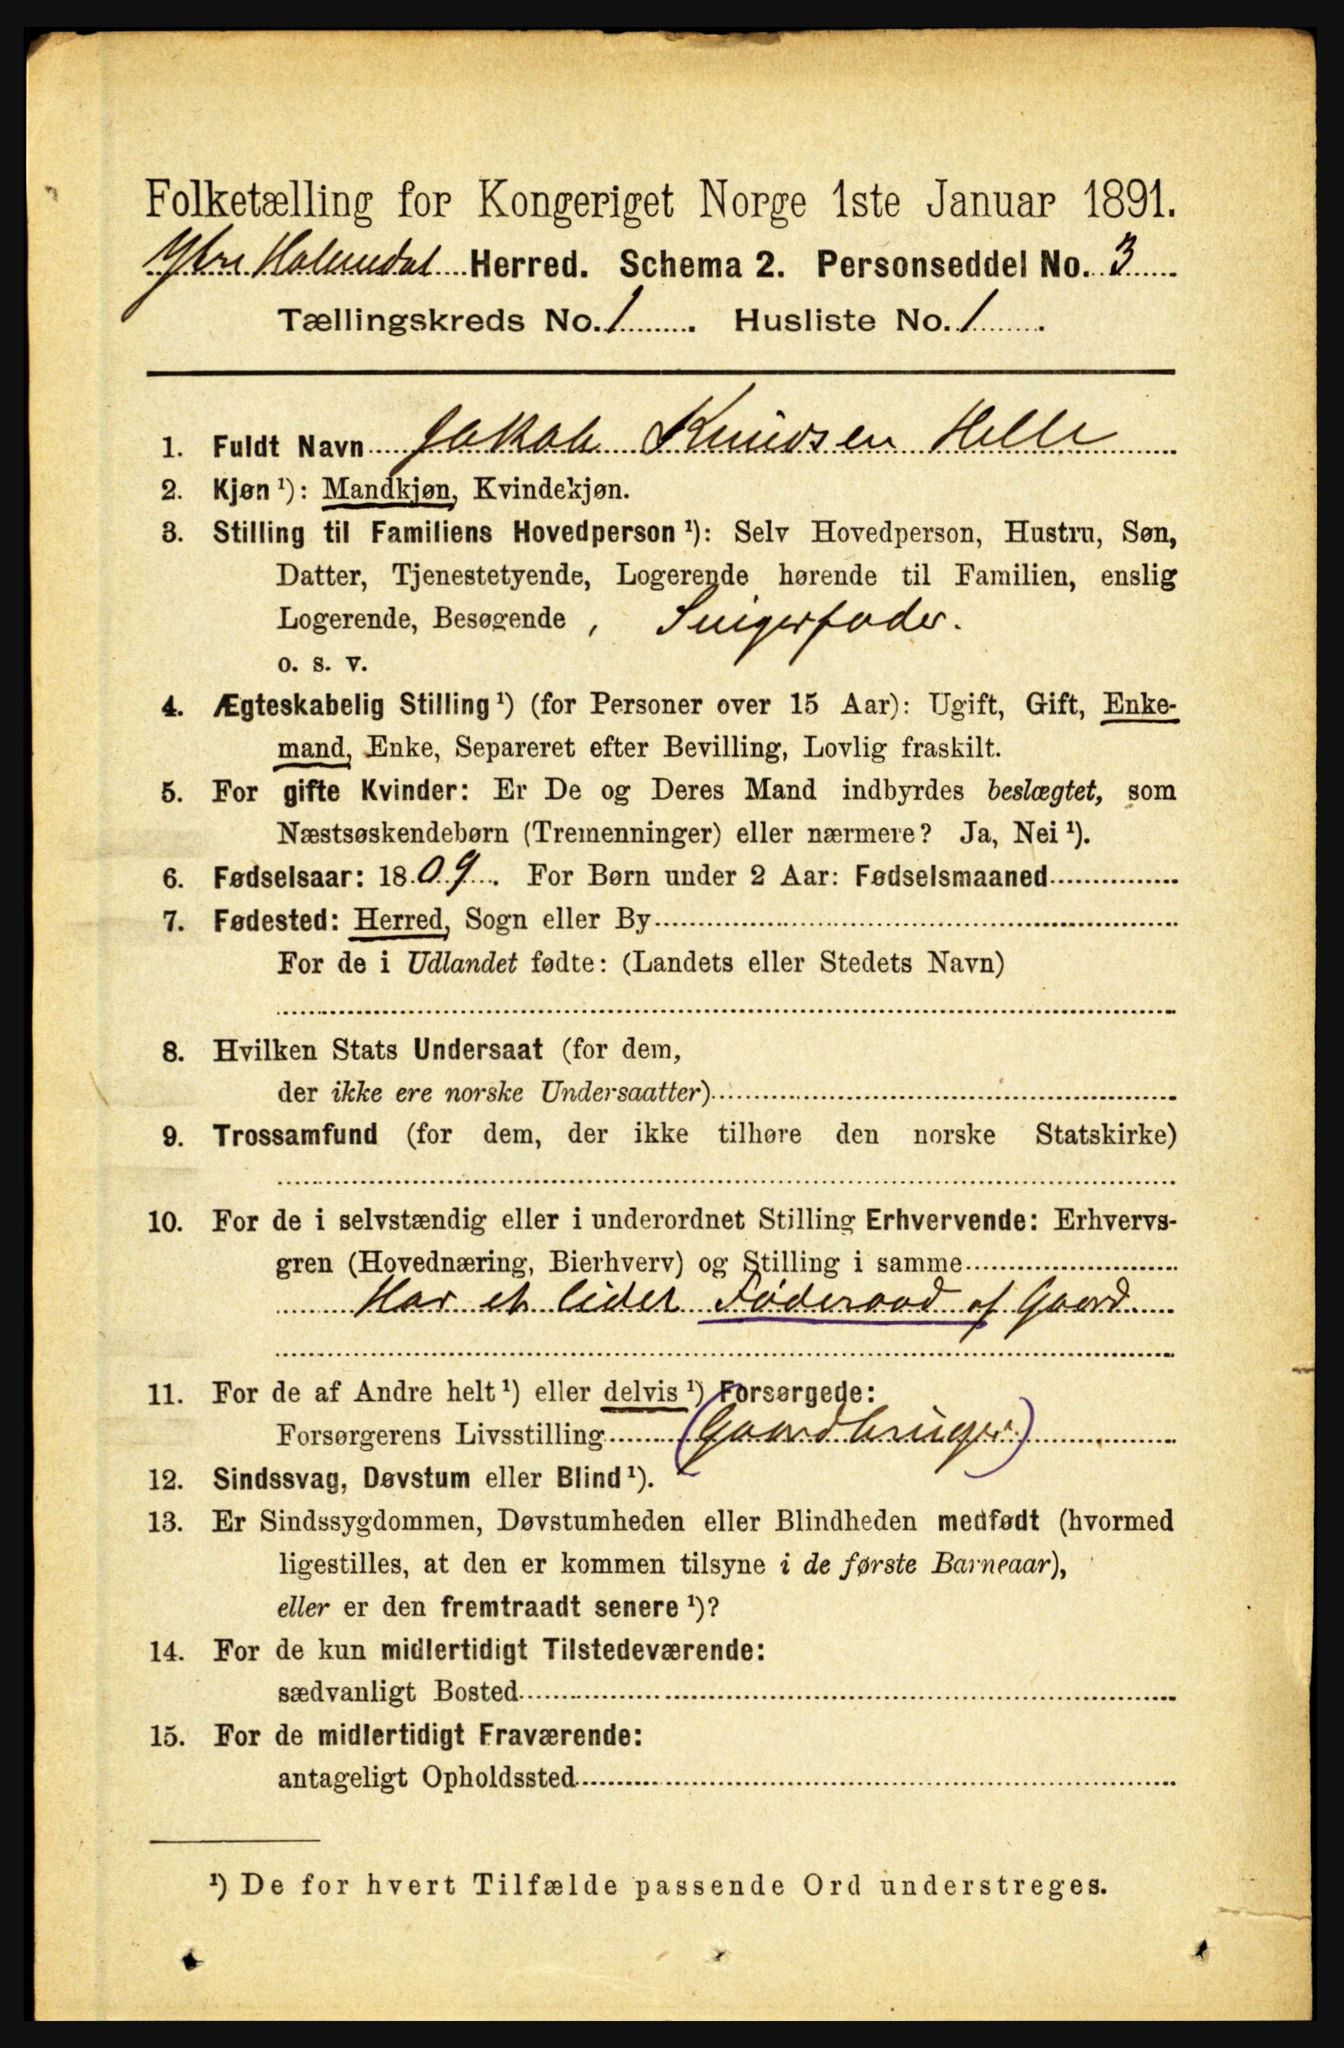 Folketælling for Kongeriget Norge 1ste Januar 1891.
Ytre Holmedal Herred. Schema 2. Personseddel No. 3
Tællingskreds No. 1. Husliste No. 1.
1. Fuldt Navn Jakob Knudsen Helle
2. Kjøn ¹): Mandkjøn, Kvindekjøn.
3. Stilling til Familiens Hovedperson ¹): Selv Hovedperson, Hustru, Søn,
Datter, Tjenestetyende, Logerende hørende til Familien, enslig
Logerende, Besøgende , Svigerfader.
o. s. v.
4. Ægteskabelig Stilling ¹) (for Personer over 15 Aar): Ugift, Gift, Enke-
mand, Enke, Separeret efter Bevilling, Lovlig fraskilt.
5. For gifte Kvinder: Er De og Deres Mand indbyrdes beslægtet, som
Næstsøskendebørn (Tremenninger) eller nærmere? Ja, Nei ¹).
6. Fødselsaar: 1809. For Børn under 2 Aar: Fødselsmaaned
7. Fødested: Herred, Sogn eller By
For de i Udlandet fødte: (Landets eller Stedets Navn)
8. Hvilken Stats Undersaat (for dem,
der ikke ere norske Undersaatter)
9. Trossamfund (for dem, der ikke tilhøre den norske Statskirke)
10. For de i selvstændig eller i underordnet Stilling Erhvervende: Erhvervs-
gren (Hovednæring, Bierhverv) og Stilling i samme
Har et lidet Føderaad af Gaard
11. For de af Andre helt ¹) eller delvis ¹) Forsørgede:
Forsørgerens Livsstilling (Gaardbruger)
12. Sindssvag, Døvstum eller Blind ¹).
13. Er Sindssygdommen, Døvstumheden eller Blindheden medfødt (hvormed
ligestilles, at den er kommen tilsyne i de første Barneaar),
eller er den fremtraadt senere ¹)?
14. For de kun midlertidigt Tilstedeværende:
sædvanligt Bosted
15. For de midlertidigt Fraværende:
antageligt Opholdssted
¹) De for hvert Tilfælde passende Ord understreges.